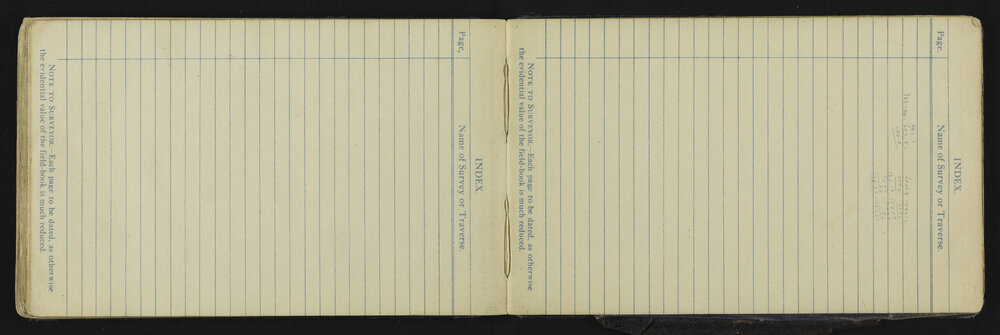 INDEX.
Page. Name of Survey or Traverse.
NOTE TO SURVEYOR.—Each page to be dated, as otherwise
the evidential value of the field-book is much reduced.
INDEX.
Page. Name of Survey or Traverse.
NOTE TO SURVEYOR.—Each page to be dated, as otherwise
the evidential value of the field-book is much reduced.